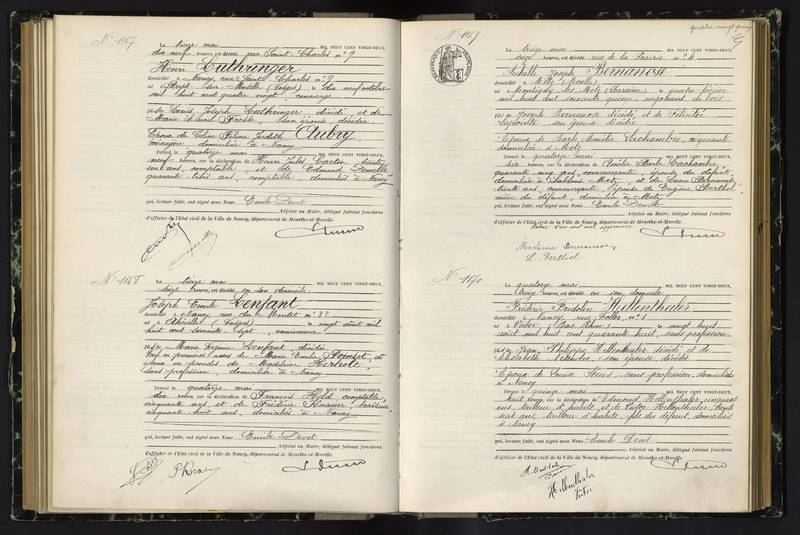 N° 1167
Le treize mai MIL NEUF CENT VINGT-DEUX,
dix neuf heures, est décédé rue Saint Charles n° 9
Henri Luthringer
domicilié à Nancy, rue Saint Charles n° 9
né à Rupt sur Moselle (Vosges) le dix neuf octobre
mil huit cent quatre vingt, concierge
fils de Louis Joseph Luthringer, décédé et de
Marie, son épouse, décédée
Époux de Céline Judith Aubry
ménagère domiciliée à Nancy
Dressé le quatorze mai MIL NEUF CENT VINGT-DEUX,
neuf heures, sur la déclaration de Henri Jules Carton, trente
sept ans, comptable, et de Edmond
quarante trois ans, comptable, domiciliés à Nancy
qui, lecture faite, ont signé avec Nous Emile Devot
Adjoint au Maire, délégué faisant fonctions
d'officier de l'Etat civil de la Ville de Nancy, département de Meurthe-et-Moselle.
N° 1168
Le treize mai MIL NEUF CENT VINGT-DEUX,
seize heures, est décédé en son domicile
Joseph Emile Lenfant
domicilié à Nancy rue du Montet n° 32
né à (Vosges) le vingt août mil
huit cent soixante sept, camionneur
fils de Marie Virginie Lenfant décédée
Veuf en premières noces de Marie Emilie Poinsot, et
époux en secondes de Madeleine
sans profession domiciliée à Nancy
Dressé le quatorze mai MIL NEUF CENT VINGT-DEUX,
dix heures, sur la déclaration de François Held comptable,
cinquante ans et de Frédéric
cinquante huit ans, domiciliés à Nancy
qui, lecture faite, ont signé avec Nous Emile Devot
Adjoint au Maire, délégué faisant fonctions
d'officier de l'Etat civil de la Ville de Nancy, département de Meurthe-et-Moselle.
quatre vingt
N° 1169
Le treize mai MIL NEUF CENT VINGT-DEUX,
seize heures, est décédé rue de la Prairie n° 4
Achille Joseph Bernanose
domicilié à Metz (Moselle)
né à Montigny les Metz (Lorraine) le quatre février
mil huit cent soixante quinze, négociant en bois
fils de Joseph Bernanose décédé et de
Lapointe son épouse décédée
Époux de Berthe Lachambre, négociante
domiciliée à Metz
Dressé le quatorze mai MIL NEUF CENT VINGT-DEUX,
dix heures, sur la déclaration de Berthe Lachambre,
quarante cinq ans, commerçante, épouse du défunt,
domiciliée à Sablon Metz, et de Bernanose
trente ans, commerçante, épouse de Eugène Berthol
nièce du défunt, domiciliée à Metz
qui, lecture faite, ont signé avec Nous Emile Devot
Adjoint au Maire, délégué faisant fonctions
d'officier de l'Etat civil de la Ville de Nancy, département de Meurthe-et-Moselle.
Rature d'un mot nul approuvée
Madame Bernanose
L. Berthol
N° 1170
Le quatorze mai MIL NEUF CENT VINGT-DEUX,
treize heures, est décédé en son domicile
Frédéric Fridolin Hellenthaler
domicilié à Nancy, rue n° 1
né à (Bas Rhin) le vingt huit
août mil huit cent quarante huit, sans profession
fils de Jean Philippe Hellenthaler décédé et de
Elisabeth, son épouse décédée
Époux de Louise, sans profession, domiciliée
à Nancy
Dressé le quinze mai MIL NEUF CENT VINGT-DEUX,
huit heures, sur la déclaration de Edmond Hellenthaler, cinquante
ans, tailleur d'habits et de Victor Hellenthaler, trente
sept ans, tailleur d'habits, fils du défunt, domiciliés
à Nancy
qui, lecture faite, ont signé avec Nous Emile Devot
Adjoint au Maire, délégué faisant fonctions
d'officier de l'Etat civil de la Ville de Nancy, département de Meurthe-et-Moselle.
Hellenthaler
Victor